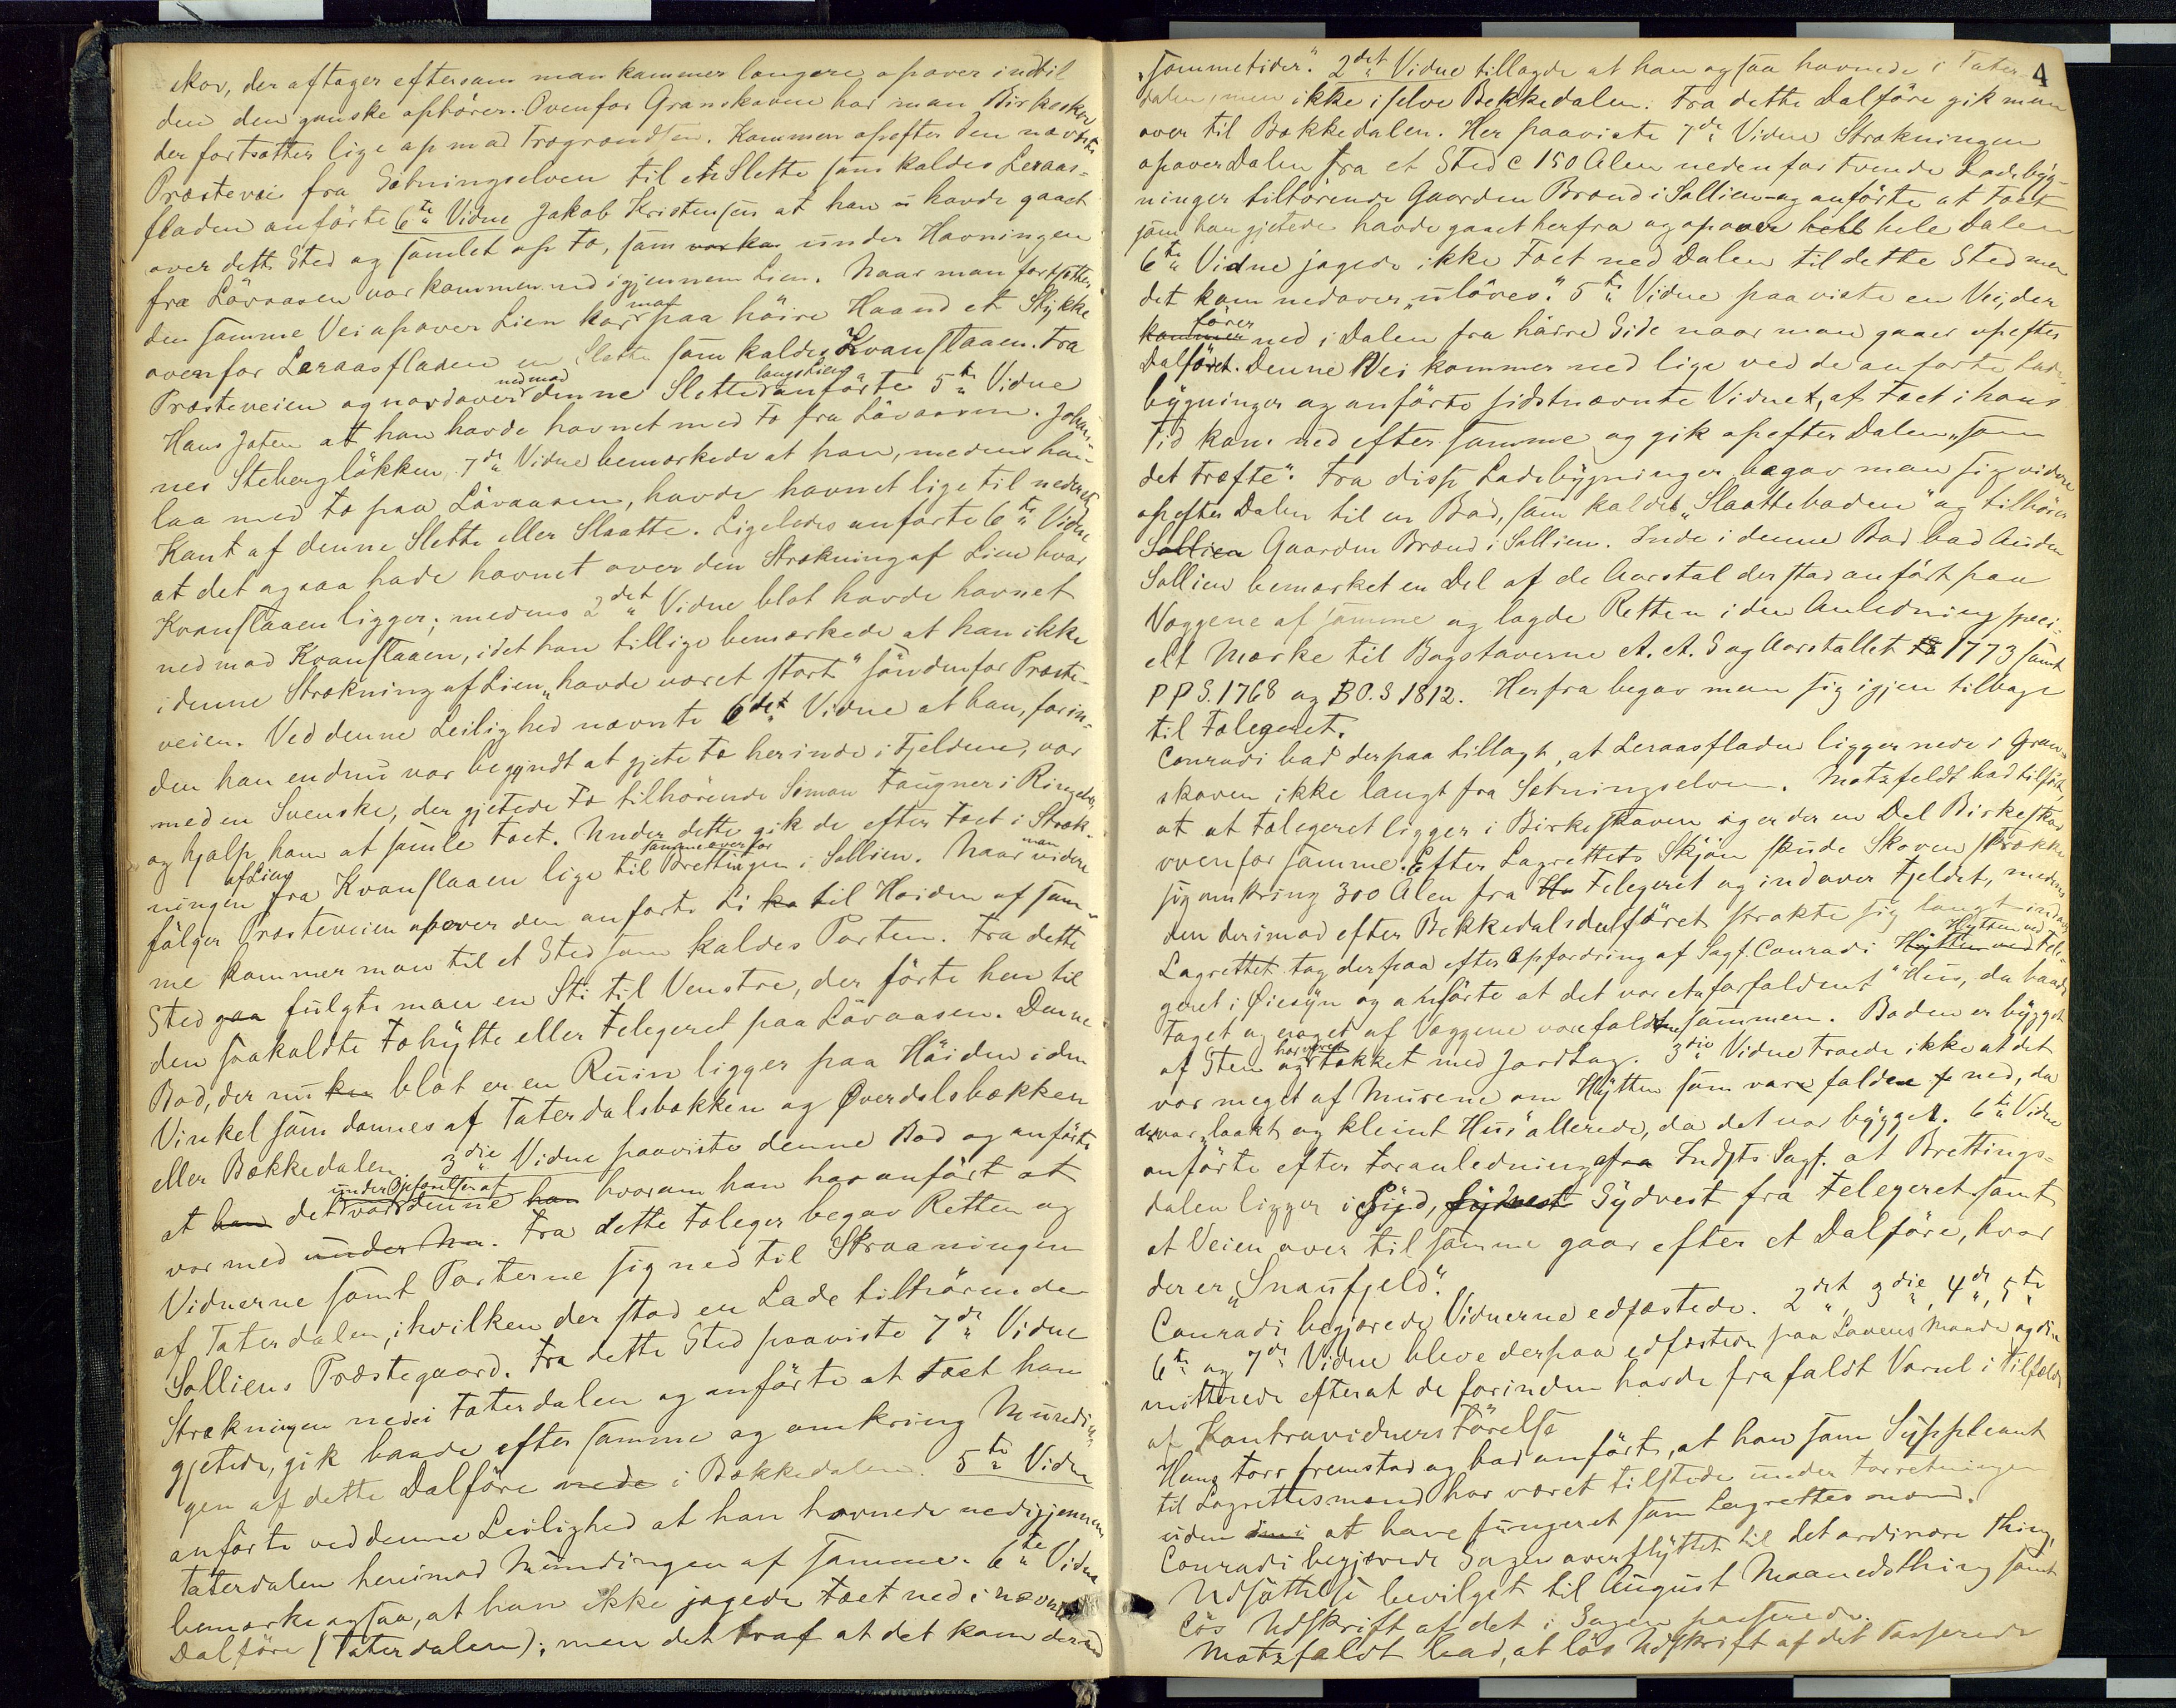 skov, der aftager eftersom man kommer længere opover indtil
den den ganske ophører. Ovenfor Granskoven har man Birkeskov
der fortsætter lige op mod Trægrændsen. Kommen opefter den nævnte
Præstevei fra Sætningselven til en Slette som kaldes Leraas-
fladen anførte 6te Vidne Jakob Kristensen at han havde gaaet
over dette Sted og samlet op Fæ, som var ko under Havningen
fra Lövaasen var kommen ned igjennem Lien. Naar man fortsætter
den samme Vei opover Lien har man paa höire Haand et Stykke
ovenfor Leraasfladen en Slette som kaldes Kvanslaaen. Fra
Præsteveien og nordover ned mod denne Slette langs Lien anförte 5te Vidne
Hans Joten at han havde havnet med Fæ fra Lövaasen. Johan-
nes Stebergløkken 7de Vidne bemærkede at han, medens han
laa med Fæ paa Lövaasen, havde havnet lige til nederste
Kant af denne Slette eller Slaatte. Ligeledes anførte 6te Vidne
at det ogsaa hade havnet over den Strækning af Lien hvor
Kvanslaaen ligger; medens 2det Vidne blot havde havnet
ned mod Kvanslaaen, idet han tillige bemærkede at han ikke
i denne Strækning af Lien „havde været stort“ söndenfor Præste-
veien. Ved denne Leilighed nævnte 6det Vidne at han, forin-
den han endnu var begyndt at gjete Fæ herinde i Fjeldene, var
med en Svenske, der gjetede Fæ tilhørende Simon Faugner i Ringebu
og hjalp ham at samle Fæet. Under dette gik de efter Fæet i Stræk-
ningen af Lien fra Kvanslaaen lige til samme ovenfor Brettingen i Sollien. Naar man videre
fölger Præsteveien opover den anførte Li ko til Höiden af sam-
me kommer man til et Sted som kaldes Porten. Fra dette
Sted gaa fulgte man en Sti til Venstre, der förte hen til
den saakaldte Fæhytte eller Fælegeret paa Lövaasen. Denne
Bod, der nu kun blot er en Ruin ligger paa Höiden i den
Vinkel som dannes af Taterdalsbækken og Øverdalsbækken
eller Bækkedalen. 3die Vidne paaviste denne Bod og anförte
at han det var under Opförelsen af denne han hvorom han har anfört at
var med under Mu. Fra dette Fæleger begav Retten og
Vidnerne samt Parterne sig ned til Skraaningen
af Taterdalen, i hvilken der stod en Lade tilhörende
Solliens Præstegaard. Fra dette Sted paaviste 7de Vidne
Strækningen nedi Taterdalen og anförte at Fæet han
gjetede, gik baade efter samme og omkring Mundin-
gen af dette Dalföre nede i Bækkedalen. 5te Vidne
anförte ved denne Leilighed at han havnede ned igjennem
Taterdalen henimod Mundingen af samme. 6te Vidne
bemærke ogsaa, at han ikke jagede Fæet ned i nævnte
Dalföre (Taterdalen); men det traf at det kom derned
4
„sommetider“. 2det Vidne tillagde at han ogsaa havnede i Tater-
dalen, men ikke i selve Bekkedalen. Fra dette Dalföre gik man
over til Bækkedalen. Her paaviste 7de Vidne Strækningen
opover Dalen fra et Sted c 150 Alen nedenfor tvende Ladebyg-
ninger tilhörende Gaarden Brænd i Sollien og anförte at Fæet
som han gjetede havde gaaet herfra og opover helt hele Dalen
6te Vidne jagede ikke Fæet ned Dalen til dette Sted men
det kom nedover „uløves“. 5te Vidne paaviste en Vei, der
kommer fører ned i Dalen fra høire Side naar man gaaer opefter
Dalföret. Denne Vei kommer ned lige ved de anførte Lade-
bygninger og anförte sidstnævnte Vidnet, at Fæet i hans
Tid kom ned efter samme og gik opefter Dalen „som
det træfte“. Fra disse Ladebygninger begav man sig videre
opefter Dalen til en Bod, som kaldes „Slaatteboden“ og tilhörer
Sollien Gaarden Brænd i Sollien. Inde i denne Bod bad Auden
Sollien bemærket en Del af de Aarstal der stod anfört paa
Væggene af samme og lagde Retten i den Anledning speci-
elt Mærke til Bogstaverne A. A. S og Aarstallet 18 1773 samt
P P S. 1768 og B O. S 1812. Herfra begav man sig igjen tilbage
til Fælegeret.
Conradi bad derpaa tillagt, at Leraasfladen ligger nede i Gran-
skoven ikke langt fra Sætningselven. Motzfeldt bad tilført,
at at Fælegeret ligger i Birkeskoven og er der en Del Birkeskov
ovenfor samme. Efter Lagrettets Skjön skulde Skoven strække
sig omkring 300 Alen fra Ho Fælegeret og indover Fjeldet, medens
den derimod efter Bekkedalsdalføret strakte sig langt indover
Lagrettet tog derpaa efter Opfordring af Sagf. Conradi Hytten ved Hytten ved Fæle-
geret i Øiesyn og anförte at det var et „forfaldent“ Hus, da baade
Taget og noget af Væggene vare faldtne sammen. Boden er bygget
af Sten og har været tækket med Jordtag. 3die Vidne troede ikke at det
var meget af Murene om Hytten som vare faldene f ned, da
det var „laakt og kleint Hus“ allerede, da det var bygget. 6te Vidne
anförte efter Foranledning fra Indsts Sagf. at Brettings-
dalen ligger i Syd, Sydvest Sydvest fra Fælegeret samt
at Veien over til samme gaar efter et Dalföre, hvor
der er „Snaufjeld“.
Conradi begjærede Vidnerne edfæstede. 2det, 3die, 4de, 5te
6te og 7de Vidne bleve derpaa edfæstede paa Lovens Maade og di-
mitterede efterat de forinden havde frafaldt Varsel i Tilfælde
af Kontravidners Förelse
Hans Torr fremstod og bad anfört, at han som Suppleant
til Lagrettesmænd har været tilstede under Forretningen
uden at have fungeret som Lagrettesmand.
Conradi begjærede Sagen overflyttet til det ordinære Thing,
Udsættelse bevilget til August Maanedsthing samt
løs Udskrift af det i Sagen passerede.
Motzfeldt bad, at løs Udskrift af det Passerede